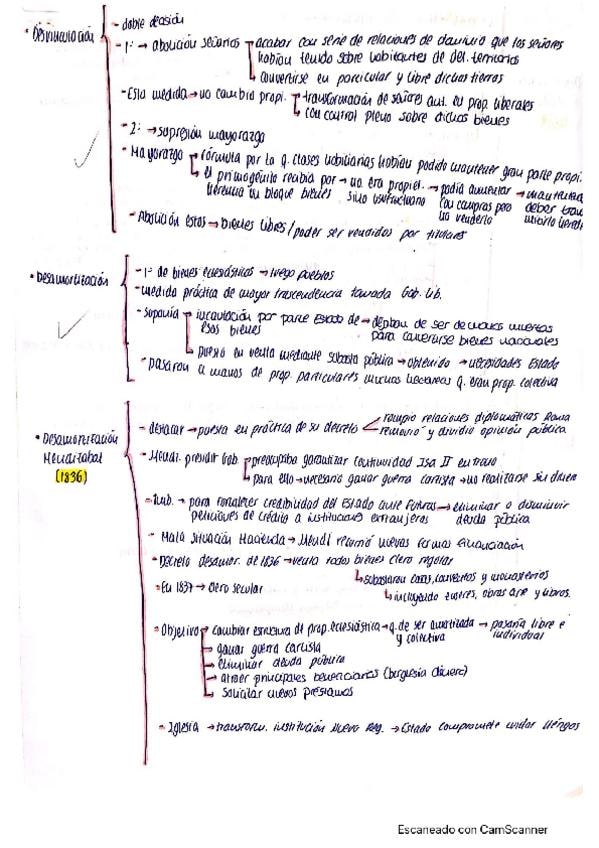 • Desvinculación
- doble decisión
- 1º → abolición señoríos → acabar con serie de relaciones de dominio que los señores
habían tenido sobre habitantes de det. territorios
↳ convertirse en particular y libre dichas tierras
- Esta medida → no cambio propi. → transformación de señores ant. en prop. liberales
↳ con control pleno sobre dichos bienes
- 2º → supresión mayorazgo
- Mayorazgo → fórmula por la q. clases nobiliarias habían podido mantener gran parte propi.
↳ el primogénito recibía por → no era propiet. → podía aumentar →
herencia en bloque bienes sino usufructuario con compras pero deber
no venderlo
- Abolición estos → bienes libres / poder ser vendidos por titulares
• Desamortización
- 1º de bienes eclesiásticos → luego pueblos
- medida práctica de mayor trascendencia tomada Gob. lib.
- suponía → incautación por parte Estado de → dejaban de ser de manos muertas
esos bienes para convertirse bienes nacionales
↳ puesta en venta mediante subasta pública → obtenido → necesidades Estado
- pasaron a manos de prop. particulares muchas hectáreas q. eran prop. colectiva
• Desamortización
Mendizábal
(1836)
- destacar → puesta en práctica de su decreto rompió relaciones diplomáticas Roma
removió y dividió opinión pública
- Mendi. presidir Gob. → preocupaba garantizar continuidad Isa II en trono
↳ para ello → necesario ganar guerra carlista → no realizarse sin dinero
- Tmb. → para fortalecer credibilidad del Estado ante futuras → eliminar o disminuir
peticiones de crédito a instituciones extranjeras deuda pública
- Mala situación Hacienda → Mendi recurrió nuevas formas financiación
- Decreto desamor. de 1836 → venta todos bienes clero regular
↳ subastaron casas, conventos y monasterios
- En 1837 → clero secular
↳ incluyendo enseres, obras arte y libros.
- Objetivo → cambiar estructura de prop. eclesiástica → q. de ser amortizada → pasaría libre e
y colectiva individual
→ ganar guerra carlista
→ eliminar deuda pública
→ atraer principales beneficiarios (burguesía dinero)
↳ solicitar nuevos préstamos
- Iglesia → transform. institución Nuevo Reg. → Estado compromete
Escaneado con CamScanner